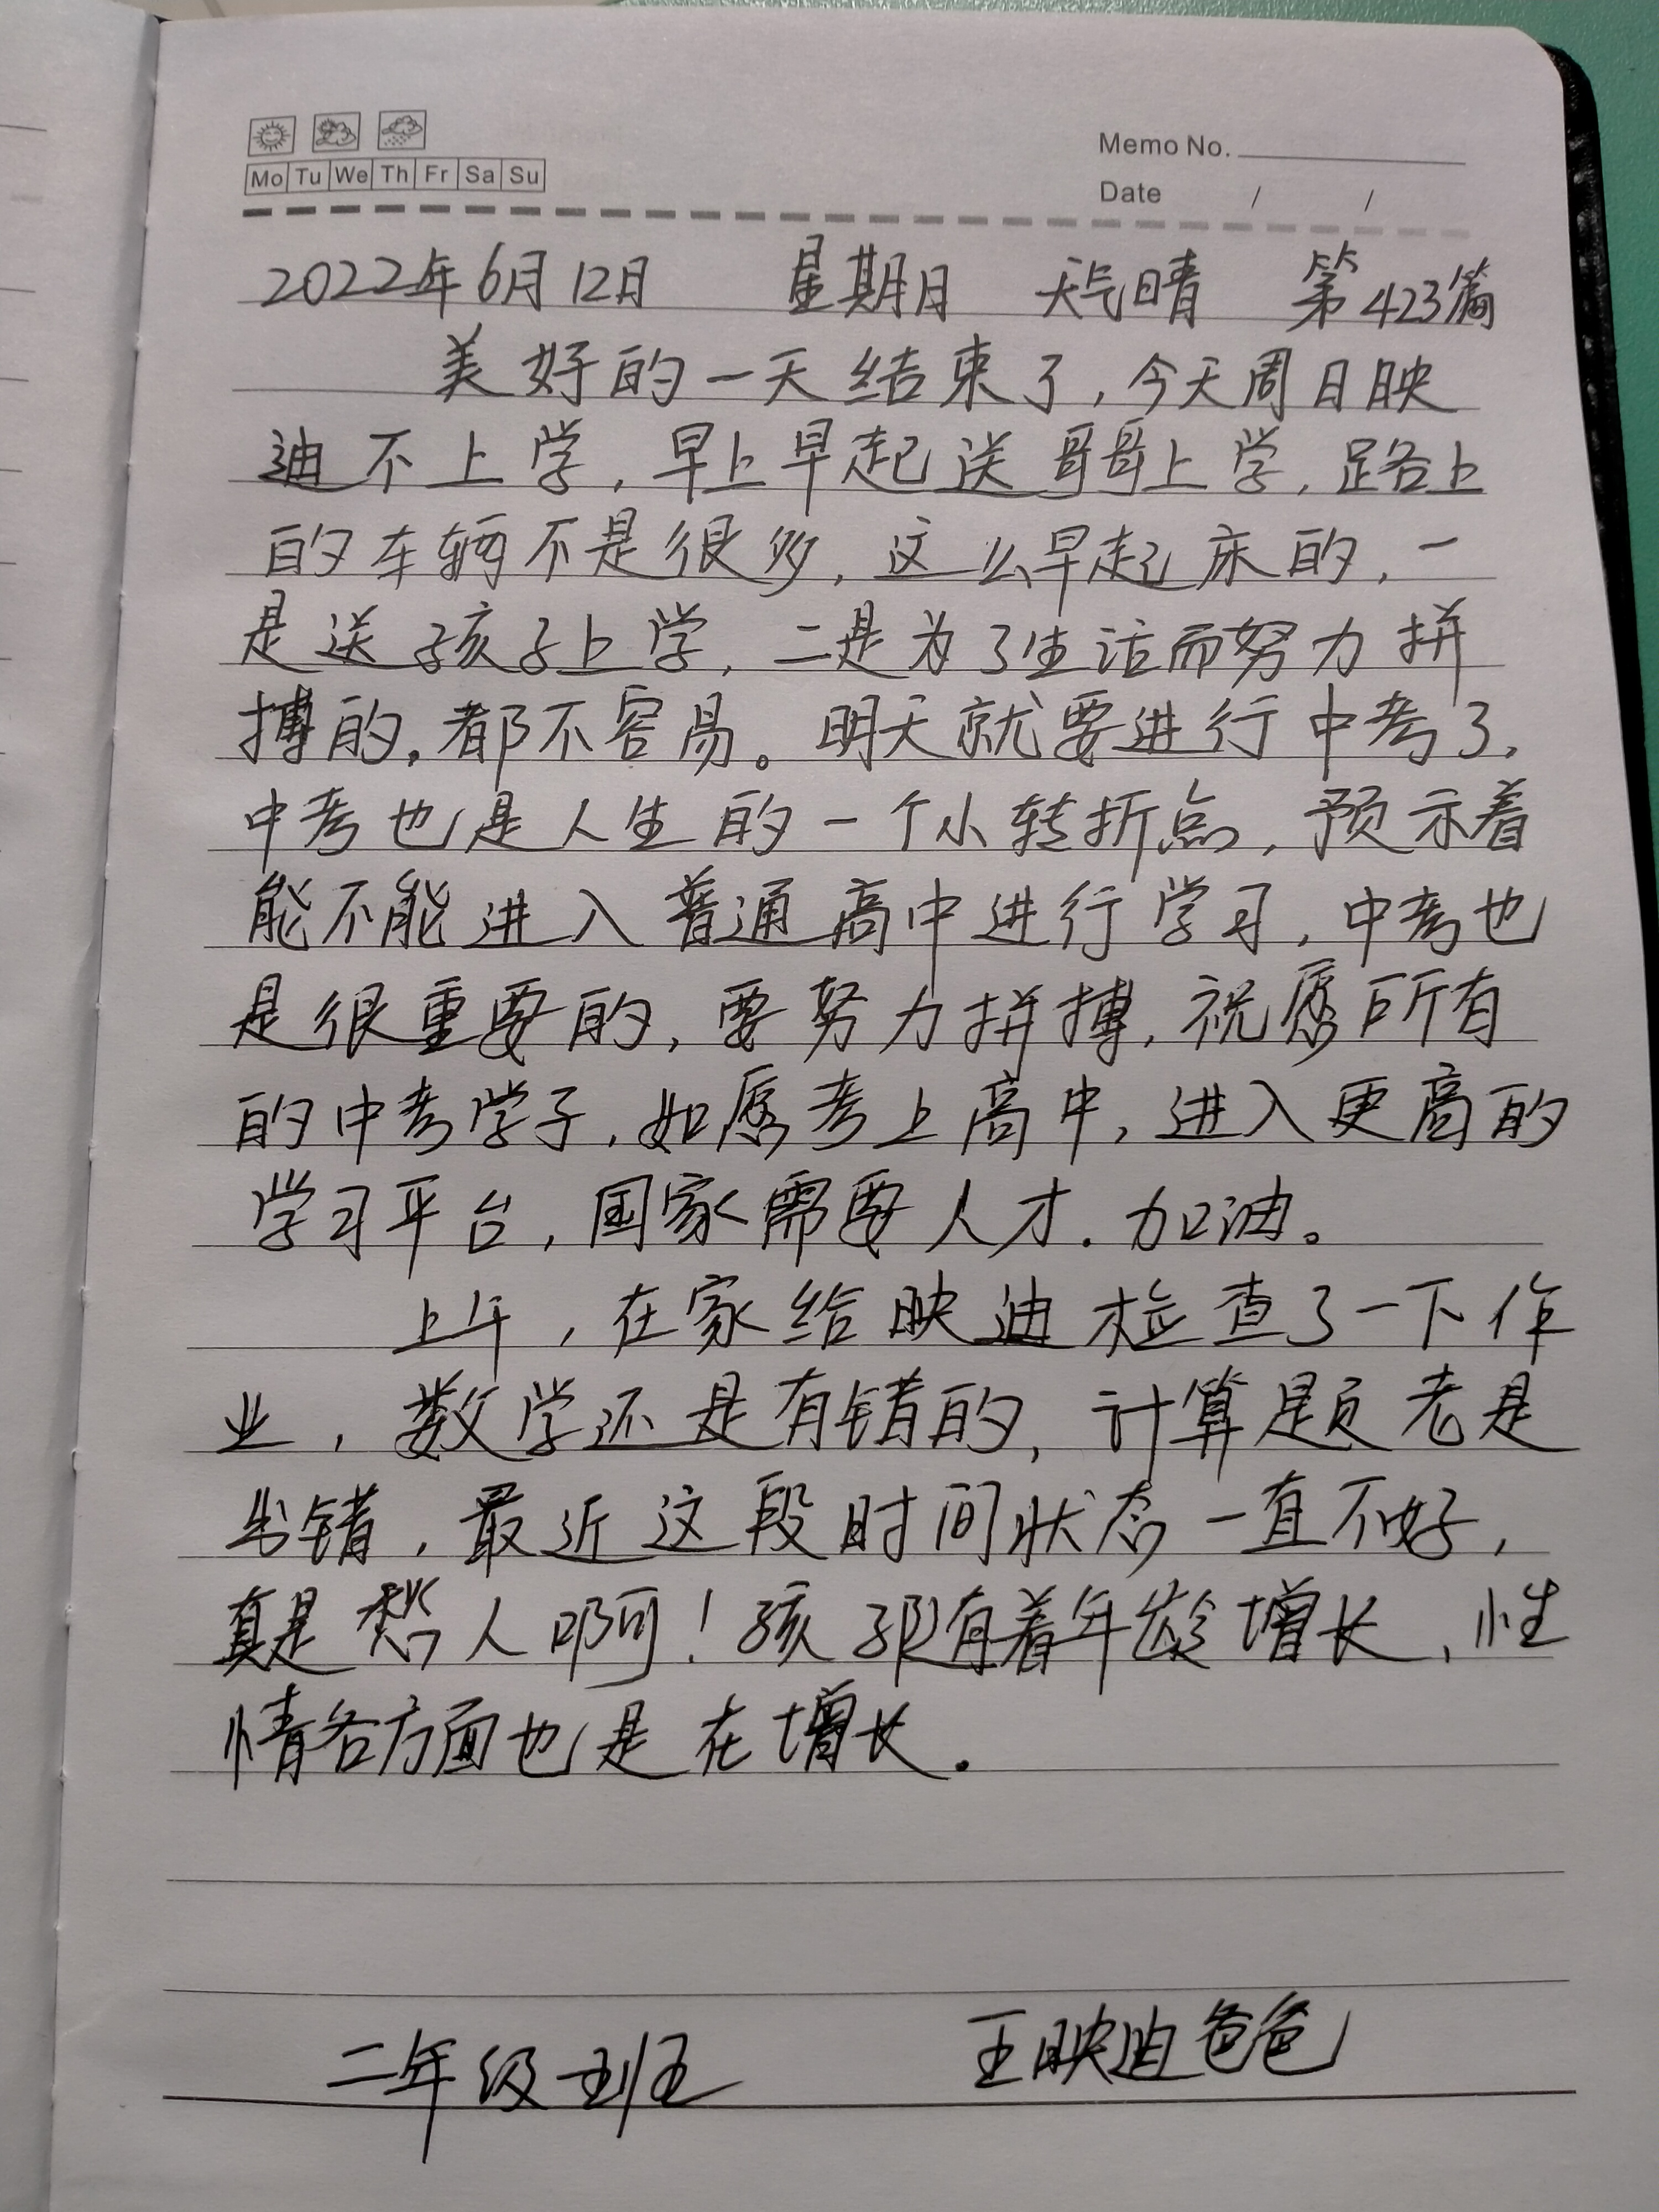 Mo Tu We Th Fr Sa Su
Memo No.
Date / /
2022年6月12日 星期日 天气晴 第423篇
美好的一天结束了,今天周日映
迪不上学,早上早起送哥哥上学,路上
的车辆不是很多,这么早起床的,一
是送孩子上学,二是为了生活而努力拼
搏的,都不容易。明天就要进行中考了,
中考也是人生的一个小转折点,预示着
能不能进入普通高中进行学习,中考也
是很重要的,要努力拼搏,祝愿所有
的中考学子,如愿考上高中,进入更高的
学习平台,国家需要人才.加油。
上午,在家给映迪检查了一下作
业,数学还是有错的,计算题老是
出错,最近这段时间状态一直不好,
真是愁人啊!孩子有着年龄增长、性
情各方面也是在增长.
二年级班 王映迪爸爸